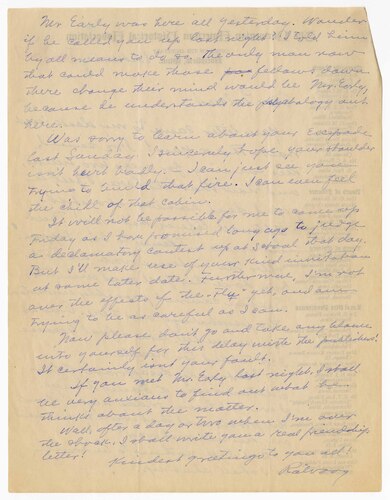 Mr. Early was here all yesterday. Wonder
if he called you up last night? I told him
by all means to do so. The only man now
that could make those fellows down
there change their mind would be Mr. Early,
because he understands the psychology out
here.
Was sorry to learn about your escapade
last Sunday. I sincerely hope your shoulder
isn't hurt badly. — I can just see you
trying to build that fire. I can even feel
the chill of that cabin.
It will not be possible for me to come up
Friday as I had promised long ago to judge
a declamatory contest up at School that day.
But I'll make use of your kind invitation
at some later date. Furthermore, I'm not
over the effects of the "Flu" yet, and am
trying to be as careful as I can.
Now please don't go and take any blame
into yourself for this delay with the publishers!
It certainly isn't your fault.
If you met Mr. Early last night, I shall
be very anxious to find out what he
thinks about the matter.
Well, after a day or two when I'm over
the shock, I shall write you a real friendship
letter!
Kindest greetings to you all!